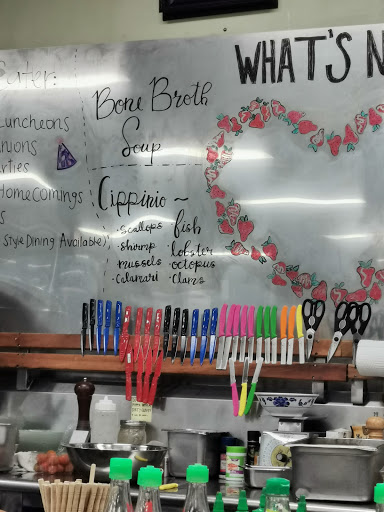 WHAT'S N
Cater
Luncheons
unions
rties
Homecomings
s
Style Dining Available)
Bone Broth
Soup
Cippinio ~
· scallops · fish
· shrimp · lobster
· mussels · octopus
· Calamari · Clams